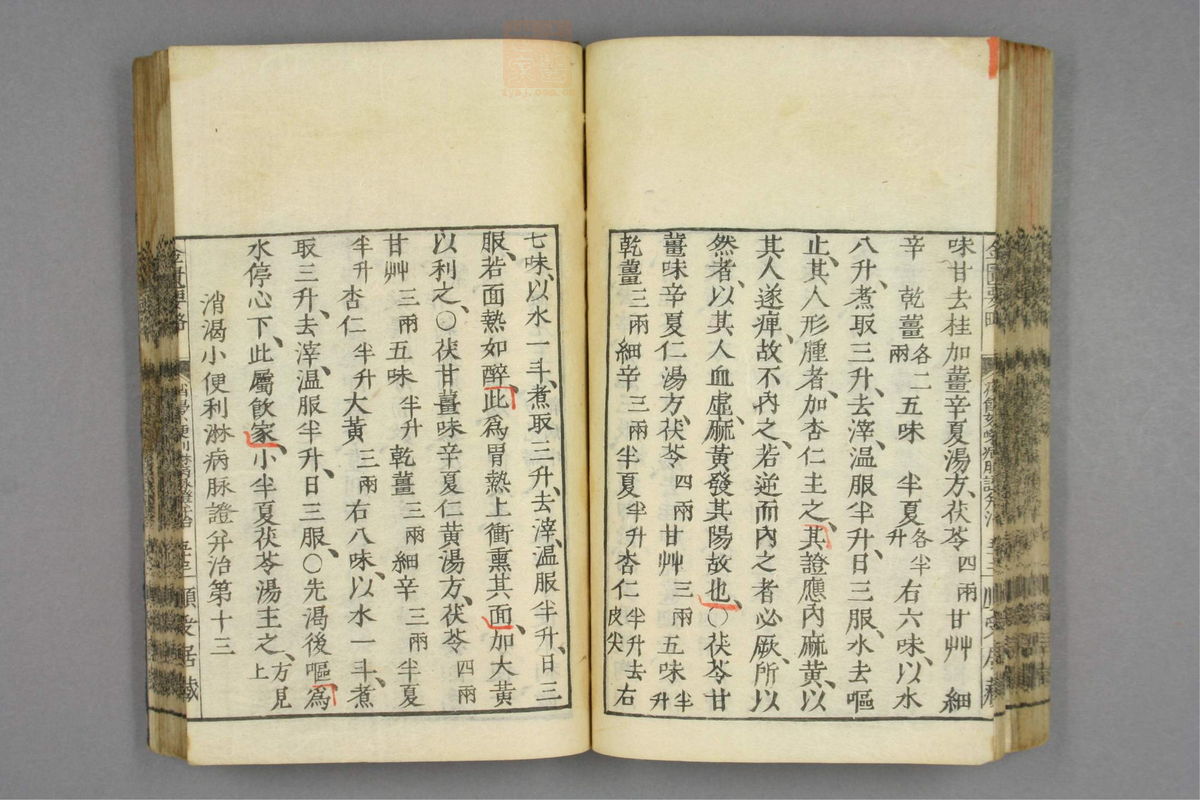 味甘去桂加薑辛夏湯方、茯苓四兩甘艸 細
辛 乾薑各二兩 五味 半夏各半升 右六味、以水
八升、煮取三升、去滓、温服半升、日三服、水去嘔
止、其人形腫者、加杏仁主之、其證應內麻黃、以
其人遂痺、故不內之、若逆而內之者必厥、所以
然者、以其人血虛、麻黃發其陽故也、○茯苓甘
薑味辛夏仁湯方、茯苓四兩甘艸三兩五味半升
乾薑三兩細辛三兩半夏半升杏仁半升去皮尖右
七味、以水一斗、煮取三升、去滓、温服半升、日三
服、若面熱如醉、此爲胃熱上衝熏其面、加大黃
以利之、○茯甘薑味辛夏仁黃湯方、茯苓四兩
甘艸三兩五味半升乾薑三兩細辛三兩半夏
半升杏仁半升大黃三兩右八味、以水一斗、煮
取三升、去滓、温服半升、日三服、○先渴後嘔、爲
水停心下、此屬飲家、小半夏茯苓湯主之、方見上
消渴小便利淋病脉證弁治第十三
金匱要略 消渴小便利淋病脉證弁治 順受居藏